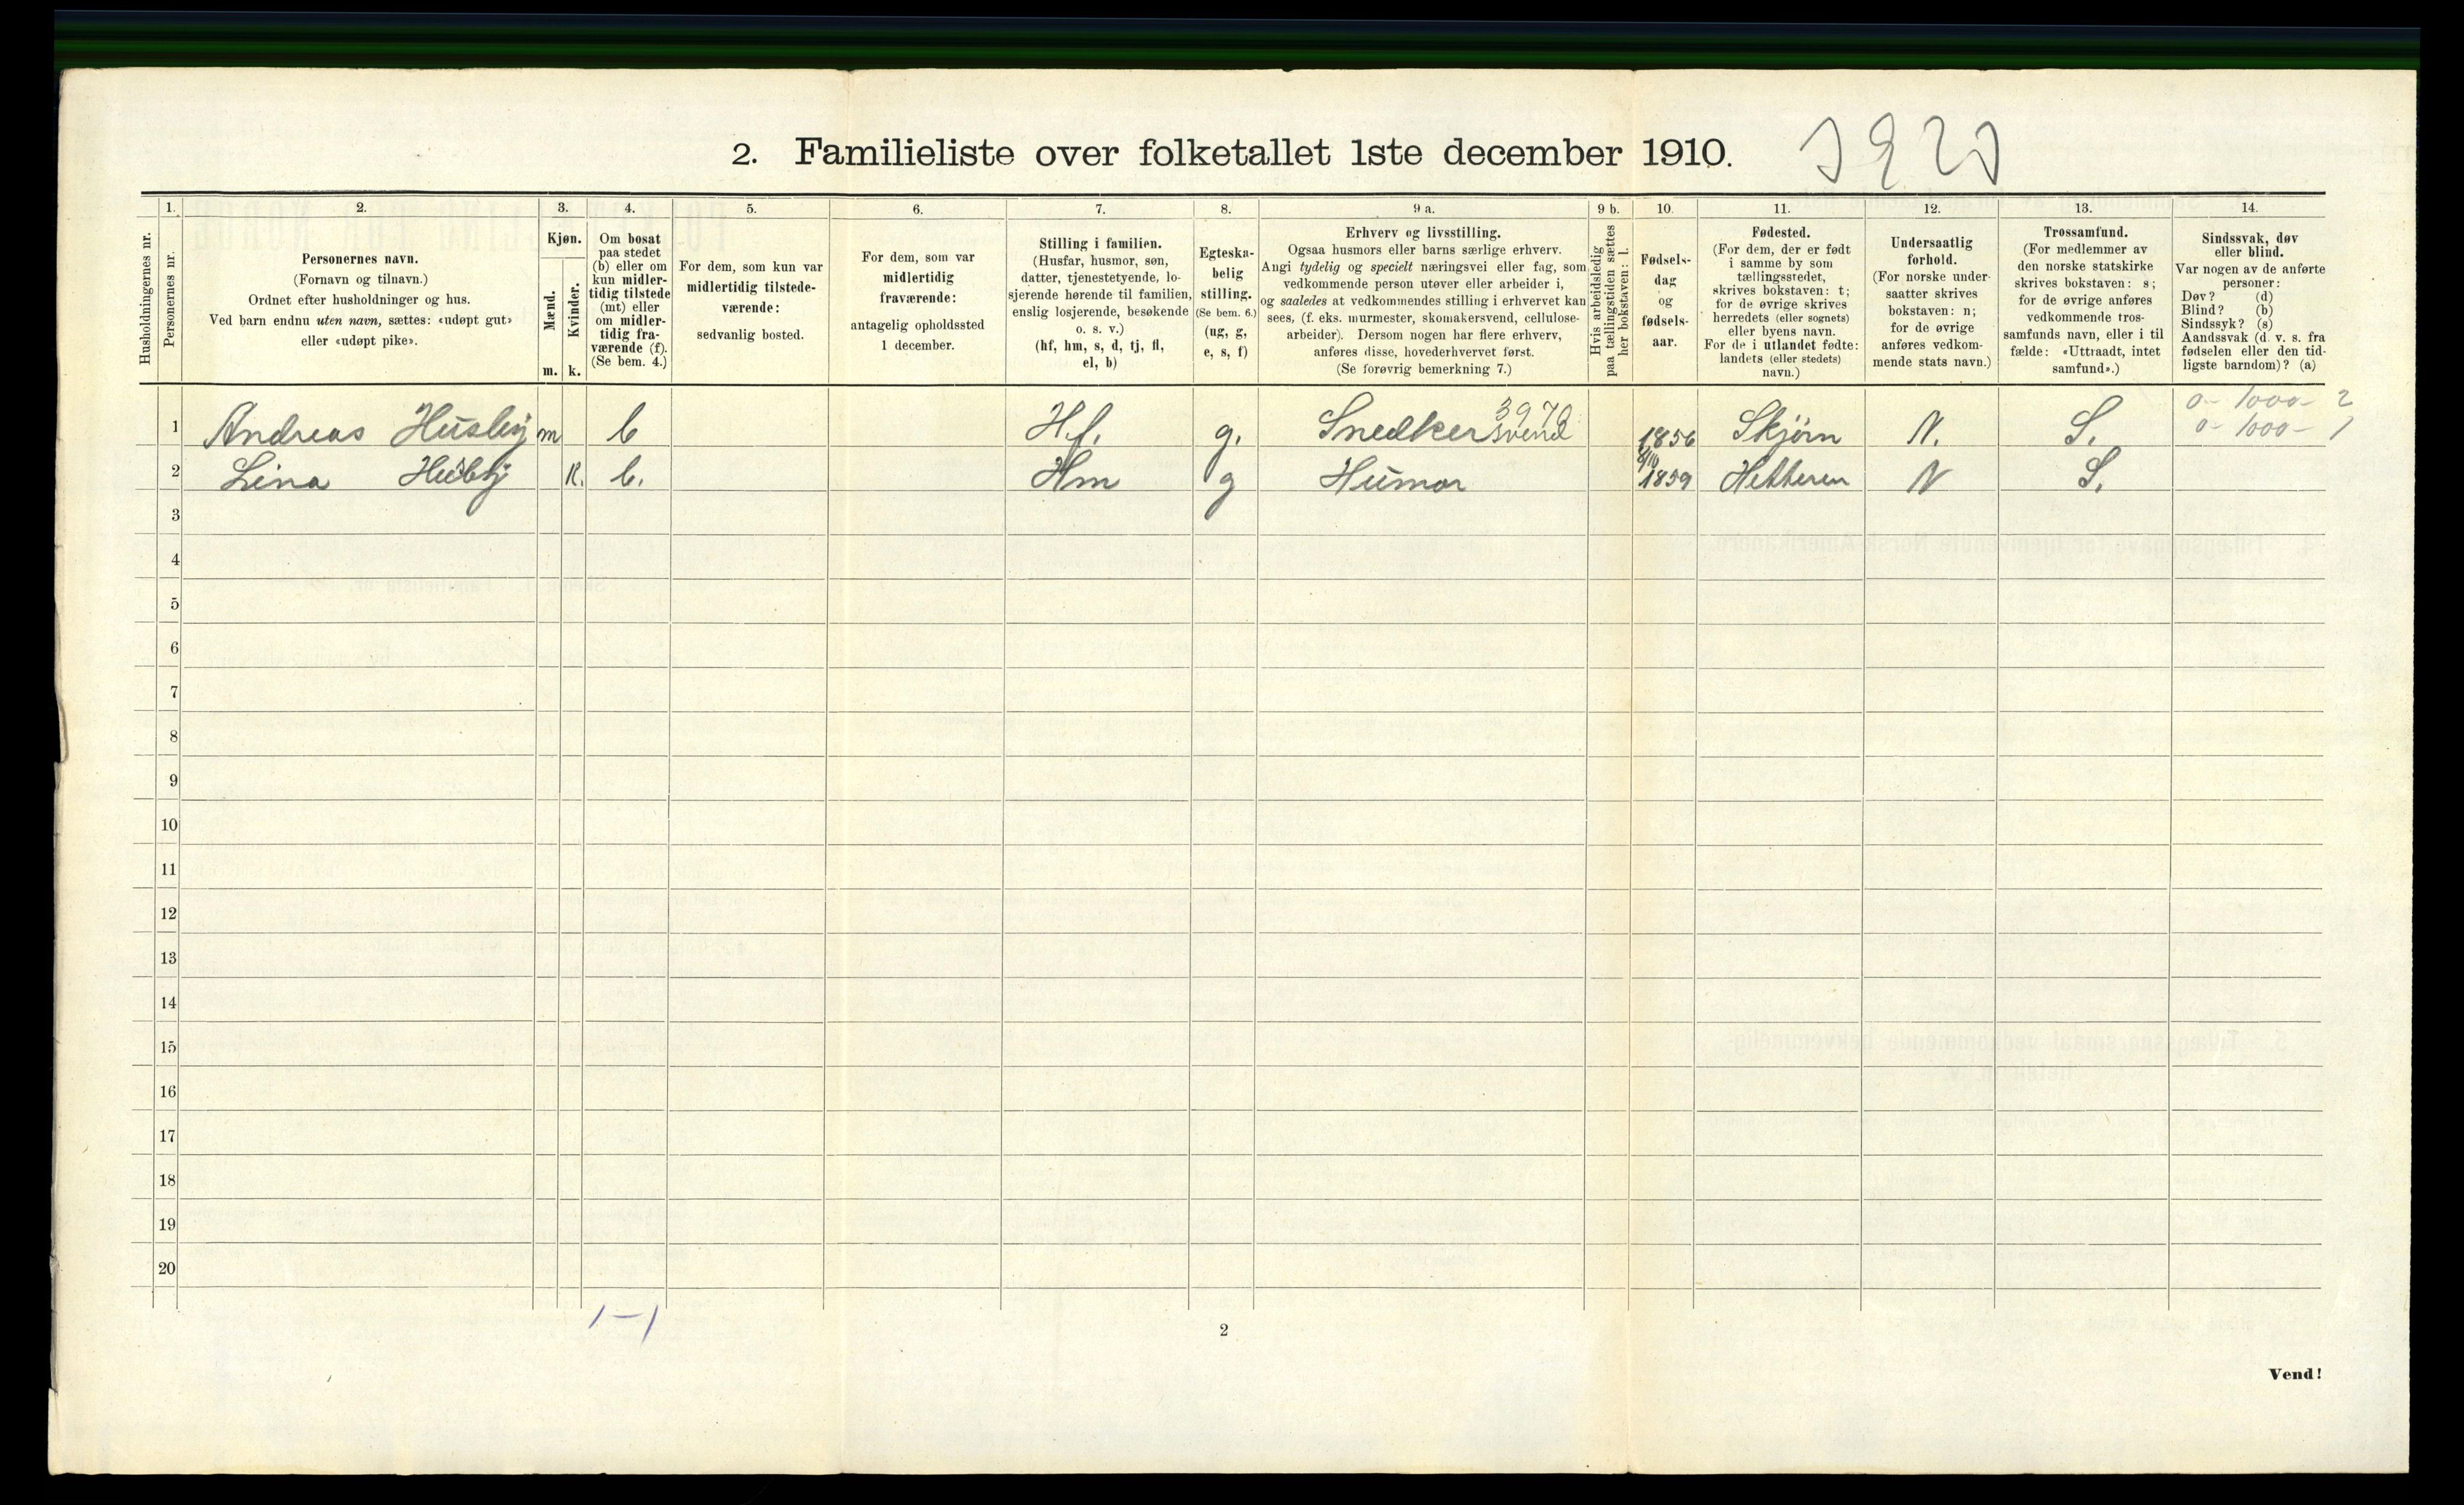 2. Familieliste over folketallet 1ste december 1910.
Husholdningernes nr.
1.
Personernes nr.
2.
Personernes navn.
(Fornavn og tilnavn.)
Ordnet efter husholdninger og hus.
Ved barn endnu uten navn, sættes: «udøpt gut»
eller «udøpt pike».
3.
Kjøn.
Mænd.
m.
Kvinder.
k.
4.
Om bosat
paa stedet
(b) eller om
kun midler-
tidig tilstede
(mt) eller
om midler-
tidig fra-
værende (f).
(Se bem. 4.)
5.
For dem, som kun var
midlertidig tilstede-
værende:
sedvanlig bosted.
6.
For dem, som var
midlertidig
fraværende:
antagelig opholdssted
1 december.
7.
Stilling i familien.
(Husfar, husmor, søn,
datter, tjenestetyende, lo-
sjerende hørende til familien,
enslig losjerende, besøkende
o. s. v.)
(hf, hm, s, d, tj, fl,
el, b)
8.
Egteska-
belig
stilling.
(Se bem. 6.)
(ug, g,
e, s, f)
9 a.
Erhverv og livsstilling.
Ogsaa husmors eller barns særlige erhverv.
Angi tydelig og specielt næringsvei eller fag, som
vedkommende person utøver eller arbeider i,
og saaledes at vedkommendes stilling i erhvervet kan
sees, (f. eks. murmester, skomakersvend, cellulose-
arbeider). Dersom nogen har flere erhverv,
anføres disse, hovederhvervet først.
(Se forøvrig bemerkning 7.)
9 b.
Hvis arbeidsledig
paa tællingstiden sættes
her bokstaven: l.
10.
Fødsels-
dag
og
fødsels-
aar.
11.
Fødested.
(For dem, der er født
i samme by som
tællingsstedet,
skrives bokstaven: t;
for de øvrige skrives
herredets (eller sognets)
eller byens navn.
For de i utlandet fødte:
landets (eller stedets)
navn.)
12.
Undersaatlig
forhold.
(For norske under-
saatter skrives
bokstaven: n;
for de øvrige
anføres vedkom-
mende stats navn.)
13.
Trossamfund.
(For medlemmer av
den norske statskirke
skrives bokstaven: s;
for de øvrige anføres
vedkommende tros-
samfunds navn, eller i til
fælde: «Uttraadt, intet
samfund».)
14.
Sindssvak, døv
eller blind.
Var nogen av de anførte
personer:
Døv? (d)
Blind? (b)
Sindssyk? (s)
Aandssvak (d. v. s. fra
fødselen eller den tid-
ligste barndom)? (a)
0 - 1000 - 2
0 - 1000 - 1
3970
1 Andreas Husby m b H.f. g. Snedker svend 1856 Skjørn N. S.
2 Lina Husby K. b. Hm g Humor 1859 Hitteren N S.
3
4
5
6
7
8
9
10
11
12
13
14
15
16
17
18
19
20
1-1
2
Vend!